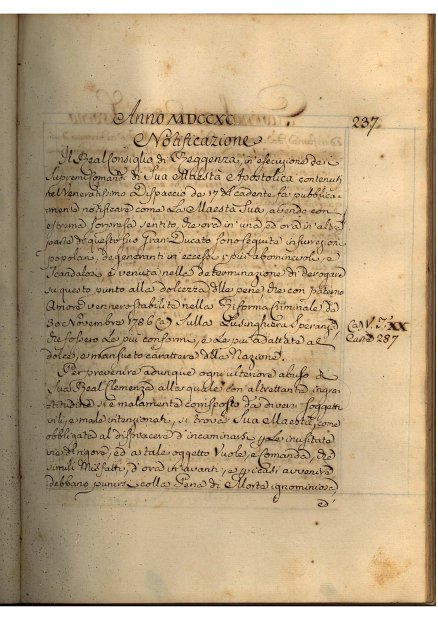 Anno MDCCXC 237.
Notificazione
Il Real Consiglio di Reggenza, in esecuzione de i
Supremi Comandi di Sua Maestà Apostolica contenuti
nel Veneratissimo Dispaccio de 17 del cadente fa pubblica-
mente notificare come La Maestà Sua, avendo con
estrema sorpresa sentito, che ora in una, ed ora in altra
parte di questo suo Gran Ducato sono seguite insurrezioni
popolari, degeneranti in eccessi i più abominevoli, e
scandalosi è venuta nella determinazione di derogare
su questo punto alla dolcezza delle pene, che con paterno
Amore vennero stabilite nella Riforma Criminale de
30 Novembre 1786 (a) Sulla Lusinghiera Speranza
che fossero Le più conformi, e Le più adattate al
dolce, e mansueto carattere della Nazione.
(a) V. T. XX
Carte 287
Per prevenire adunque ogni ulteriore abuso di
Sua Real Clemenza alla quale con altrettanta ingra-
titudine si è malamente corrisposto da diversi soggetti
vili, e male intenzionati, si trova Sua Maestà, come
obbligata al dispiacere d'incamminarsi per le inusitate
vie di rigore, ed a tale oggetto Vuole, e Comanda, che
simili Misfatti, d'ora in avanti, e per i casi avvenire
debbano punirsi colla Pena di Morte ignominiosa,
ed